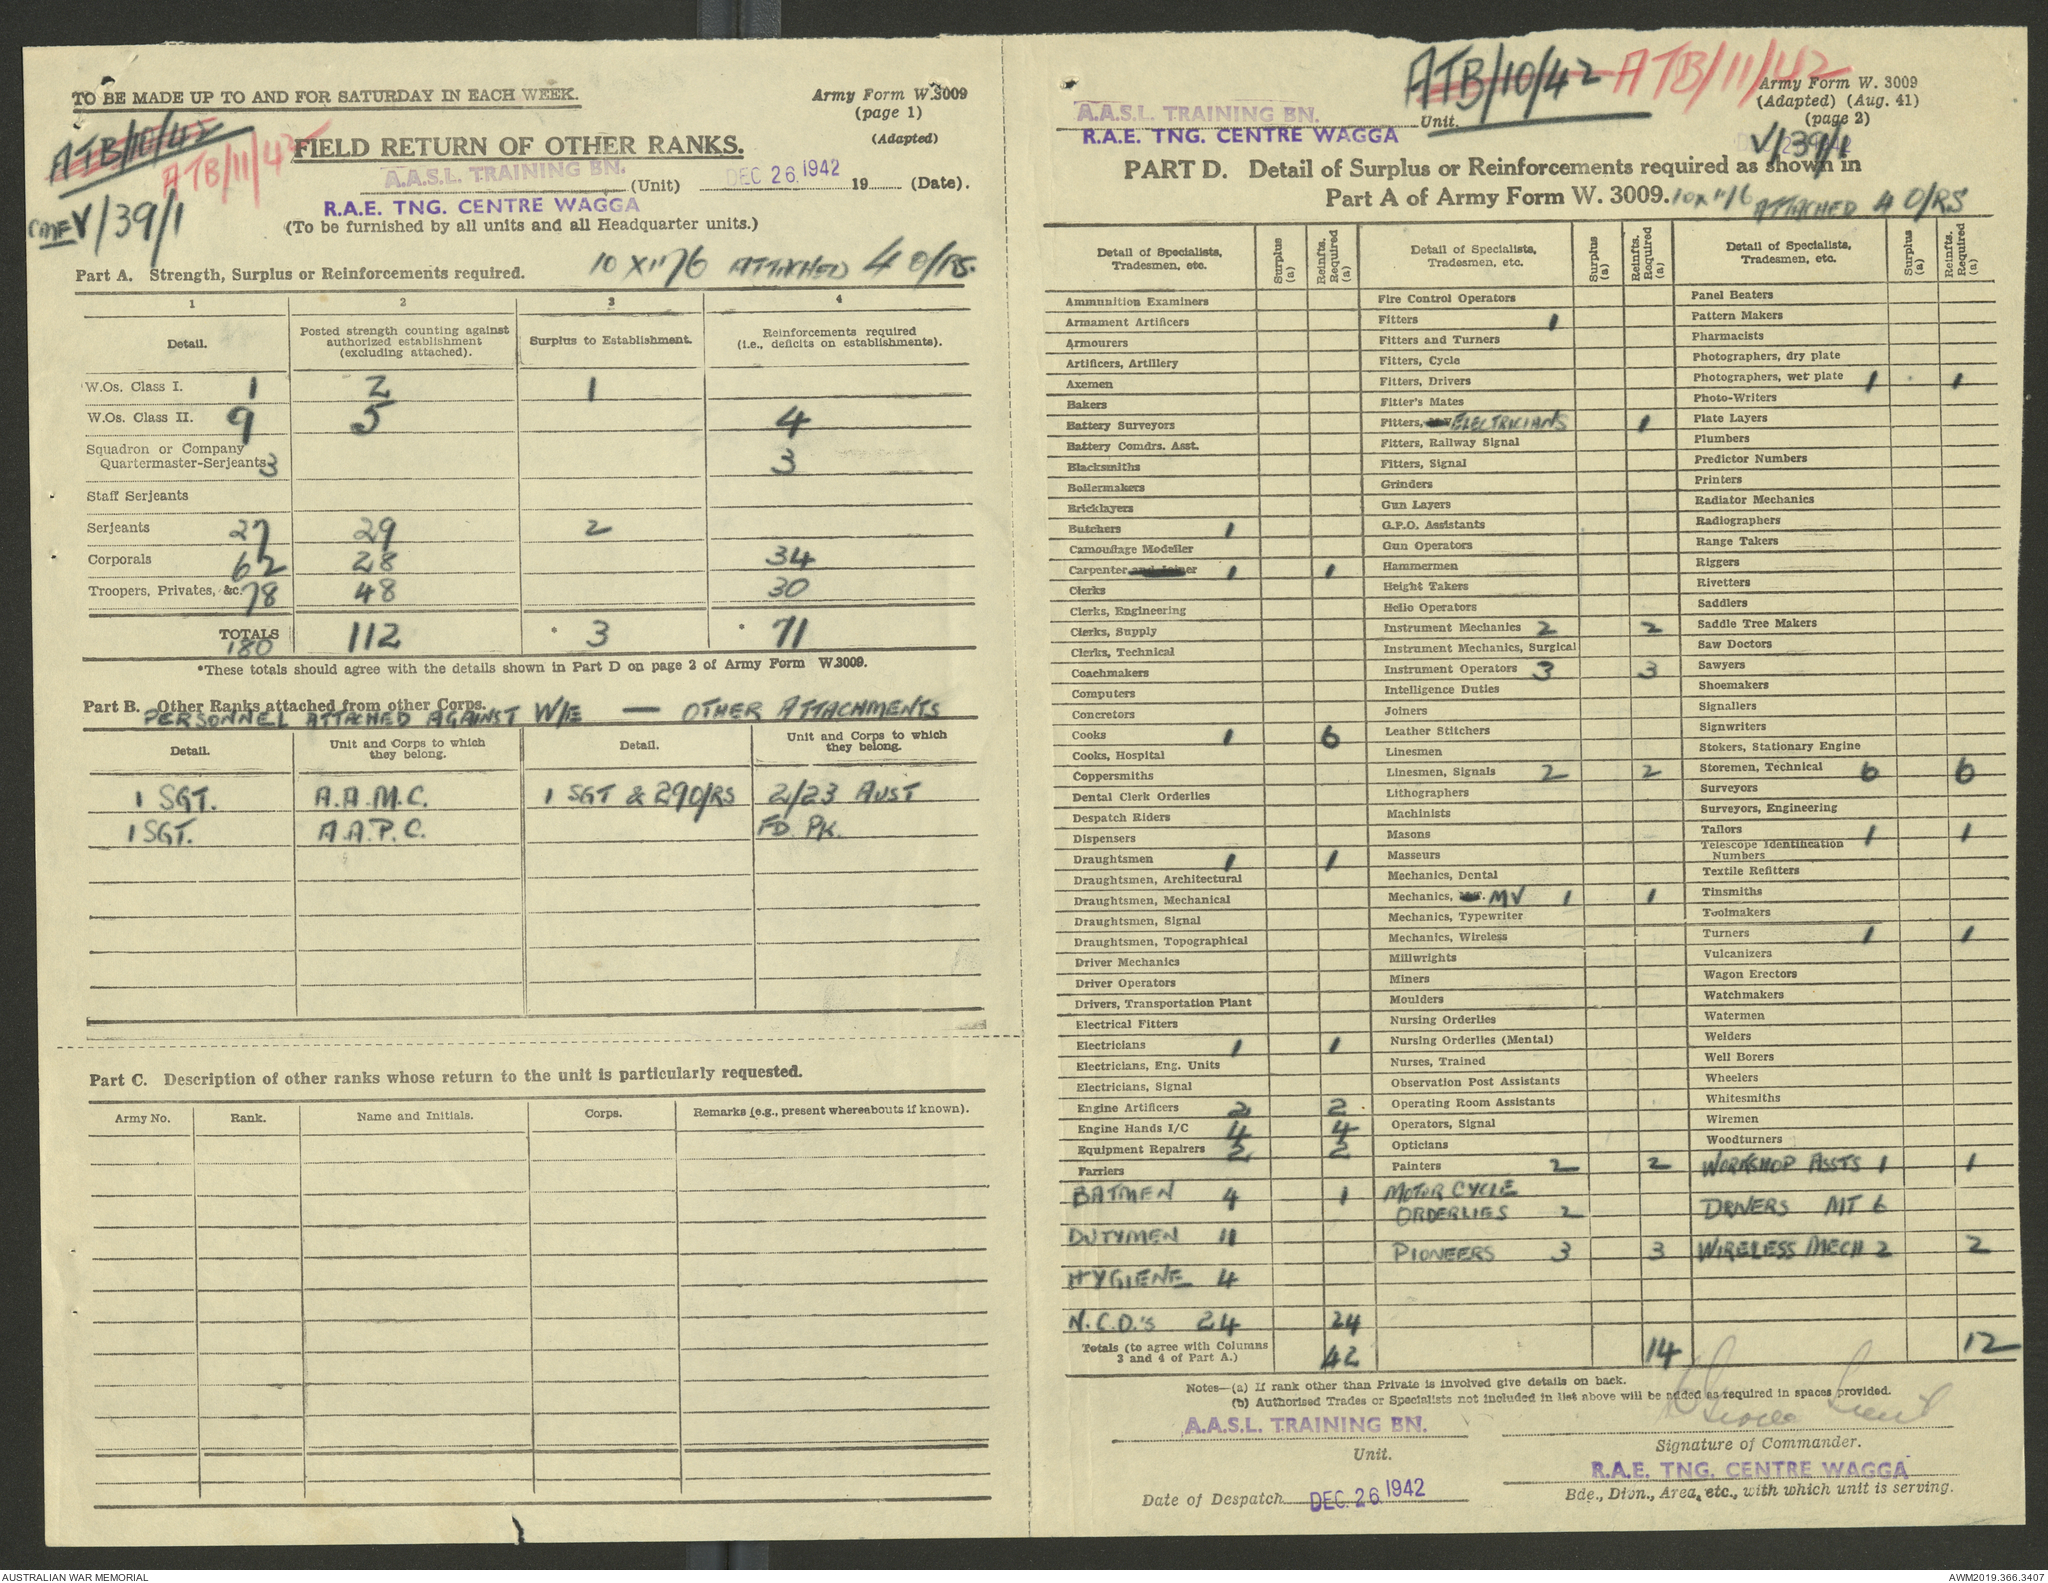 TO BE MADE UP TO AND FOR SATURDAY IN EACH WEEK.
Army Form W.3009
(page 1)
(Adapted)
ATB/10/42
ATB/11/42
V/39/1
FIELD RETURN OF OTHER RANKS.
A.A.S.L. TRAINING BN. (Unit) DEC 26 1942 19 (Date).
R.A.E. TNG. CENTRE WAGGA
(To be furnished by all units and all Headquarter units.)
Part A. Strength, Surplus or Reinforcements required.
ATTACHED 4 O/RS.
1 2 3 4
Detail. Posted strength counting against authorized establishment (excluding attached). Surplus to Establishment. Reinforcements required (i.e., deficits on establishments).
W.Os. Class I. 1 2 1
W.Os. Class II. 9 5 4
Squadron or Company
Quartermaster-Serjeants 3 3
Staff Serjeants
Serjeants 27 29 2
Corporals 62 28 34
Troopers, Privates, &c. 78 48 30
TOTALS 180 112 * 3 * 71
*These totals should agree with the details shown in Part D on page 2 of Army Form W.3009.
Part B. Other Ranks attached from other Corps.
PERSONNEL ATTACHED AGAINST W/E — OTHER ATTACHMENTS
Detail. Unit and Corps to which they belong. Detail. Unit and Corps to which they belong.
1 SGT. A.A.M.C. 1 SGT & 29 O/RS 2/23 AUST
1 SGT. A.A.P.C. FD. PK.
Part C. Description of other ranks whose return to the unit is particularly requested.
Army No. Rank. Name and Initials. Corps. Remarks (e.g., present whereabouts if known).
ATB/10/42 ATB/11/42
Army Form W. 3009
(Adapted) (Aug. 41)
(page 2)
V/39/1
A.A.S.L. TRAINING BN. Unit.
R.A.E. TNG. CENTRE WAGGA
PART D. Detail of Surplus or Reinforcements required as shown in
Part A of Army Form W. 3009.
ATTACHED 4 O/RS
Detail of Specialists, Tradesmen, etc. Surplus (a) Reinfts. Required (a)
Ammunition Examiners
Armament Artificers
Armourers
Artificers, Artillery
Axemen
Bakers
Battery Surveyors
Battery Comdrs. Asst.
Blacksmiths
Boilermakers
Bricklayers
Butchers 1
Camouflage Modeller
Carpenter and Joiner 1 1
Clerks
Clerks, Engineering
Clerks, Supply
Clerks, Technical
Coachmakers
Computers
Concretors
Cooks 1 6
Cooks, Hospital
Coppersmiths
Dental Clerk Orderlies
Despatch Riders
Dispensers
Draughtsmen 1 1
Draughtsmen, Architectural
Draughtsmen, Mechanical
Draughtsmen, Signal
Draughtsmen, Topographical
Driver Mechanics
Driver Operators
Drivers, Transportation Plant
Electrical Fitters
Electricians 1 1
Electricians, Eng. Units
Electricians, Signal
Engine Artificers 2 2
Engine Hands I/C 4 4
Equipment Repairers 2 2
Farriers
BATMEN 4 1
DUTYMEN 11
HYGIENE 4
N.C.O.'s 24 24
Totals (to agree with Columns 3 and 4 of Part A.) 42
Detail of Specialists, Tradesmen, etc. Surplus (a) Reinfts. Required (a)
Fire Control Operators
Fitters 1
Fitters and Turners
Fitters, Cycle
Fitters, Drivers
Fitter's Mates
Fitters, ELECTRICIANS 1
Fitters, Railway Signal
Fitters, Signal
Grinders
Gun Layers
G.P.O. Assistants
Gun Operators
Hammermen
Height Takers
Helio Operators
Instrument Mechanics 2 2
Instrument Mechanics, Surgical
Instrument Operators 3 3
Intelligence Duties
Joiners
Leather Stitchers
Linesmen
Linesmen, Signals 2 2
Lithographers
Machinists
Masons
Masseurs
Mechanics, Dental
Mechanics, MV 1 1
Mechanics, Typewriter
Mechanics, Wireless
Millwrights
Miners
Moulders
Nursing Orderlies
Nursing Orderlies (Mental)
Nurses, Trained
Observation Post Assistants
Operating Room Assistants
Operators, Signal
Opticians
Painters 2 2
MOTOR CYCLE
ORDERLIES 2
PIONEERS 3 3
14
Detail of Specialists, Tradesmen, etc. Surplus (a) Reinfts. Required (a)
Panel Beaters
Pattern Makers
Pharmacists
Photographers, dry plate
Photographers, wet plate 1 1
Photo-Writers
Plate Layers
Plumbers
Predictor Numbers
Printers
Radiator Mechanics
Radiographers
Range Takers
Riggers
Rivetters
Saddlers
Saddle Tree Makers
Saw Doctors
Sawyers
Shoemakers
Signallers
Signwriters
Stokers, Stationary Engine
Storemen, Technical 6 6
Surveyors
Surveyors, Engineering
Tailors 1 1
Telescope Identification Numbers
Textile Refitters
Tinsmiths
Toolmakers
Turners 1 1
Vulcanizers
Wagon Erectors
Watchmakers
Watermen
Welders
Well Borers
Wheelers
Whitesmiths
Wiremen
Woodturners
WORKSHOP ASSTS 1 1
DRIVERS MT 6
WIRELESS MECH 2 2
12
Notes—(a) If rank other than Private is involved give details on back.
(b) Authorised Trades or Specialists not included in list above will be added as required in spaces provided.
A.A.S.L. TRAINING BN.
Unit.
Signature of Commander.
R.A.E. TNG. CENTRE WAGGA
Date of Despatch DEC. 26 1942
Bde., Divn., Area, etc., with which unit is serving.
AUSTRALIAN WAR MEMORIAL
AWM2019.366.3407